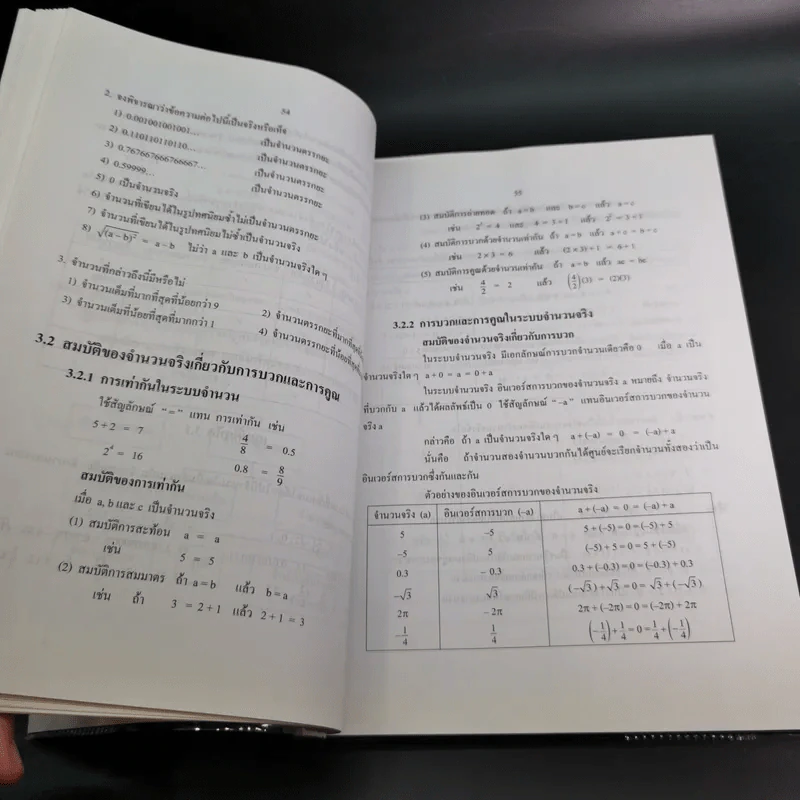 54
2. จงพิจารณาว่าข้อความต่อไปนี้เป็นจริงหรือเท็จ
1) 0.001001001001... เป็นจำนวนตรรกยะ
2) 0.110110110110... เป็นจำนวนตรรกยะ
3) 0.767667666766667... เป็นจำนวนตรรกยะ
4) 0.59999... เป็นจำนวนตรรกยะ
5) 0 เป็นจำนวนจริง
6) จำนวนที่เขียนได้ในรูปทศนิยมซ้ำไม่เป็นจำนวนตรรกยะ
7) จำนวนที่เขียนได้ในรูปทศนิยมไม่ซ้ำเป็นจำนวนจริง
8) √(a–b)² = a – b ไม่ว่า a และ b เป็นจำนวนจริงใด ๆ
3. จำนวนที่กล่าวถึงนี้มีหรือไม่
1) จำนวนเต็มที่มากที่สุดที่น้อยกว่า 9
2) จำนวนตรรกยะที่มากที่สุด
3) จำนวนเต็มที่น้อยที่สุดที่มากกว่า 1
4) จำนวนตรรกยะที่น้อยที่สุด
3.2 สมบัติของจำนวนจริงเกี่ยวกับการบวกและการคูณ
3.2.1 การเท่ากันในระบบจำนวน
ใช้สัญลักษณ์ "=" แทน การเท่ากัน เช่น
5 + 2 = 7 4/8 = 0.5
2⁴ = 16 0.8 = 8/9
สมบัติของการเท่ากัน
เมื่อ a, b และ c เป็นจำนวนจริง
(1) สมบัติการสะท้อน a = a
เช่น 5 = 5
(2) สมบัติการสมมาตร ถ้า a = b แล้ว b = a
เช่น ถ้า 3 = 2 + 1 แล้ว 2 + 1 = 3
55
(3) สมบัติการถ่ายทอด ถ้า a = b และ b = c แล้ว a = c
เช่น 2² = 4 และ 4 = 3 + 1 แล้ว 2² = 3 + 1
(4) สมบัติการบวกด้วยจำนวนเท่ากัน ถ้า a = b แล้ว a + c = b + c
เช่น 2 × 3 = 6 แล้ว (2 × 3) + 1 = 6 + 1
(5) สมบัติการคูณด้วยจำนวนเท่ากัน ถ้า a = b แล้ว ac = bc
เช่น 4/2 = 2 แล้ว (4/2)(3) = (2)(3)
3.2.2 การบวกและการคูณในระบบจำนวนจริง
สมบัติของจำนวนจริงเกี่ยวกับการบวก
ในระบบจำนวนจริง มีเอกลักษณ์การบวกจำนวนเดียวคือ 0 เมื่อ a เป็น
จำนวนจริงใด ๆ a + 0 = a = 0 + a
ในระบบจำนวนจริง อินเวอร์สการบวกของจำนวนจริง a หมายถึง จำนวนจริง
ที่บวกกับ a แล้วได้ผลลัพธ์เป็น 0 ใช้สัญลักษณ์ "–a" แทนอินเวอร์สการบวกของจำนวน
จริง a
กล่าวคือ ถ้า a เป็นจำนวนจริงใด ๆ a + (–a) = 0 = (–a) + a
นั่นคือ ถ้าจำนวนสองจำนวนบวกกันได้ศูนย์จะเรียกจำนวนทั้งสองว่าเป็น
อินเวอร์สการบวกซึ่งกันและกัน
ตัวอย่างของอินเวอร์สการบวกของจำนวนจริง
จำนวนจริง (a) อินเวอร์สการบวก (–a) a + (–a) = 0 = (–a) + a
5 –5 5 + (–5) = 0 = (–5) + 5
–5 5 (–5) + 5 = 0 = 5 + (–5)
0.3 – 0.3 0.3 + (–0.3) = 0 = (–0.3) + 0.3
–√3 √3 (–√3) + √3 = 0 = √3 + (–√3)
2π – 2π 2π + (–2π) = 0 = (–2π) + 2π
–1/4 1/4 (–1/4) + 1/4 = 0 = 1/4 + (–1/4)